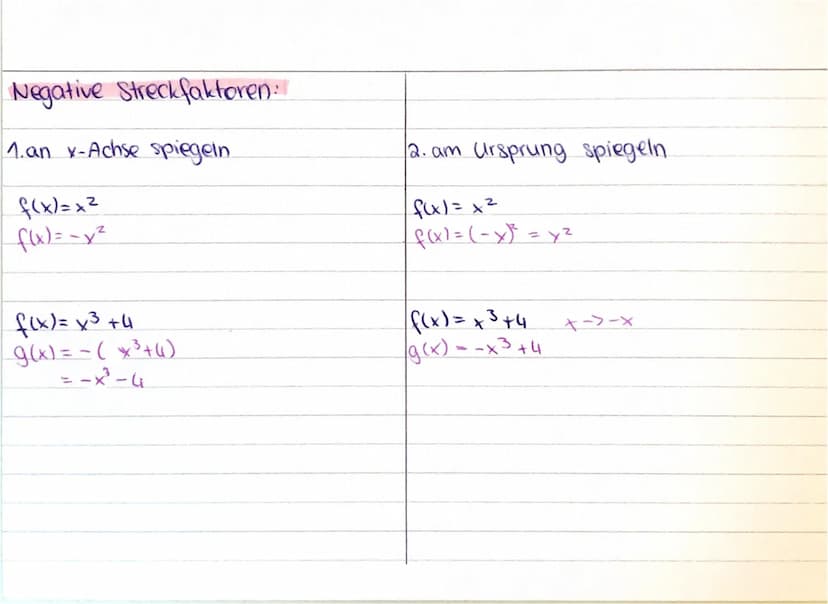 Negative Streckfaktoren:
1. an x-Achse spiegeln
f(x)=x²
f(x)=-x²
f(x)=x³+4
g(x)=-(x³+4)
=-x³-4
2. am Ursprung spiegeln
f(x)=x²
f(x)=(-x)²=x²
f(x)=x³+4 x->-x
g(x)=-x³+4